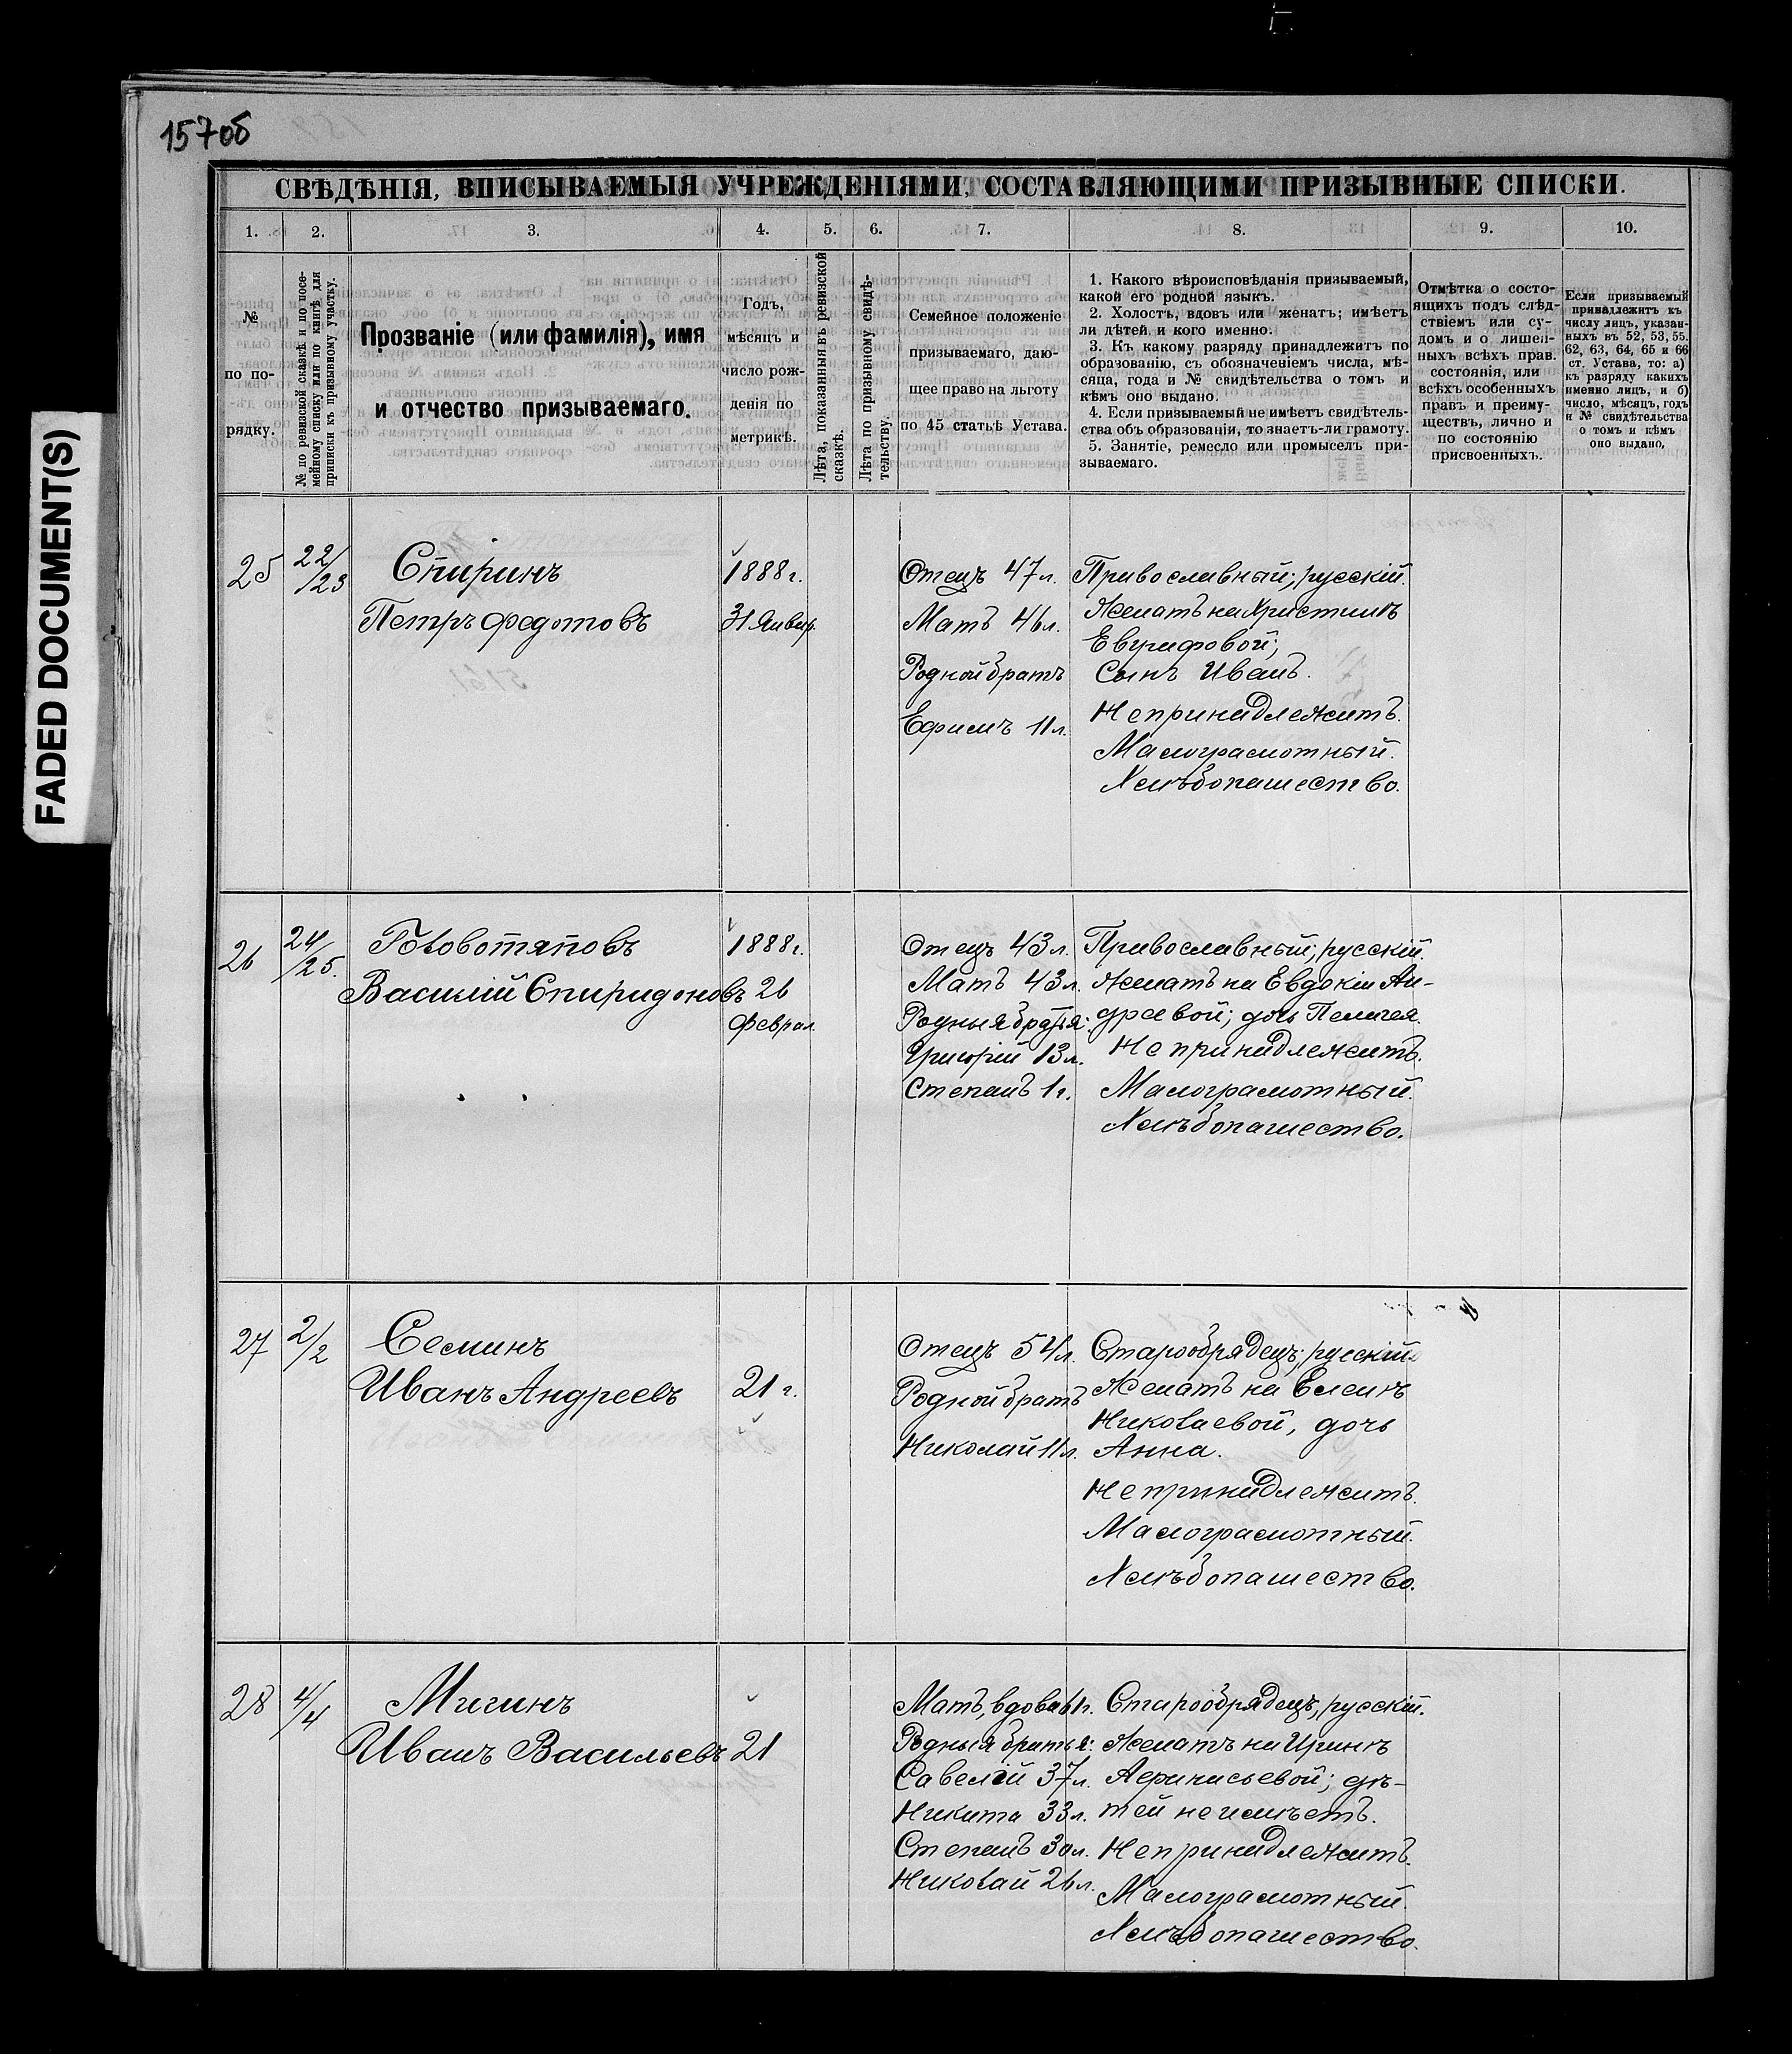 157об
FADED DOCUMENT(S)
СВѢДѢНІЯ, ВПИСЫВАЕМЫЯ УЧРЕЖДЕНІЯМИ, СОСТАВЛЯЮЩИМИ ПРИЗЫВНЫЕ СПИСКИ.
1. 2. 3. 4. 5. 6. 7. 8. 9. 10.
№
по по-
рядку.
№ по ревизской сказкѣ и по посе-
мейному списку или по книгѣ для
приписки къ призывному участку.
Прозваніе (или фамилія), имя
и отчество призываемаго.
Годъ,
мѣсяцъ и
число рож-
денія по
метрикѣ.
Лѣта, показанныя въ ревизской
сказкѣ.
Лѣта по призывному свидѣ-
тельству.
Семейное положеніе
призываемаго, даю-
щее право на льготу
по 45 статьѣ Устава.
1. Какого вѣроисповѣданія призываемый,
какой его родной языкъ.
2. Холостъ, вдовъ или женатъ; имѣетъ
ли дѣтей и кого именно.
3. Къ какому разряду принадлежитъ по
образованію, съ обозначеніемъ числа, мѣ-
сяца, года и № свидѣтельства о томъ и
кѣмъ оно выдано.
4. Если призываемый не имѣетъ свидѣтель-
ства объ образованіи, то знаетъ-ли грамоту.
5. Занятіе, ремесло или промыселъ при-
зываемаго.
Отмѣтка о состо-
ящихъ подъ слѣд-
ствіемъ или су-
домъ и о лишен-
ныхъ всѣхъ прав.
состоянія, или
всѣхъ особенныхъ
правъ и преиму-
ществъ, лично и
по состоянію
присвоенныхъ.
Если призываемый
принадлежитъ къ
числу лицъ, указан-
ныхъ въ 52, 53, 55.
62, 63, 64, 65 и 66
ст. Устава, то: а)
къ разряду какихъ
именно лицъ, и б)
число, мѣсяцъ, годъ
и № свидѣтельства
о томъ и кѣмъ
оно выдано,
25
22/23
Спиринъ
Петръ Федотовъ
1888 г.
31 Январ.
Отецъ 47 л.
Мать 46 л.
Родной братъ
Ефимъ 11 л.
Православный; русскій.
Женатъ на Христинѣ
Евграфовой;
Сынъ Иванъ.
Не принадлежитъ.
Малограмотный.
Хлѣбопашество.
26
24/25.
Головотяповъ
Василій Спиридоновъ
1888 г.
26
Феврал.
Отецъ 43 л.
Мать 43 л.
Родныя братья:
Григорій 13 л.
Степанъ 1 г.
Православный; русскій.
Женатъ на Евдокіи Ан-
дреевой; дочь Пелагея.
Не принадлежитъ.
Малограмотный.
Хлѣбопашество.
27
2/2
Семинъ
Иванъ Андреевъ
21 г.
Отецъ 54 л.
Родной братъ
Николай 11 л.
Старообрядецъ; русскій.
Женатъ на Еленѣ
Николаевой, дочь
Анна.
Не принадлежитъ.
Малограмотный.
Хлѣбопашество.
28
4/4
Мигинъ
Иванъ Васильевъ
21
Мать, вдова 61 г.
Родныя братья:
Савелій 37 л.
Никита 33 л.
Степанъ 30 л.
Николай 26 л.
Старообрядецъ, русскій.
Женатъ на Иринѣ
Афанасьевой; дѣ-
тей не имѣетъ.
Не принадлежитъ.
Малограмотный.
Хлѣбопашество.